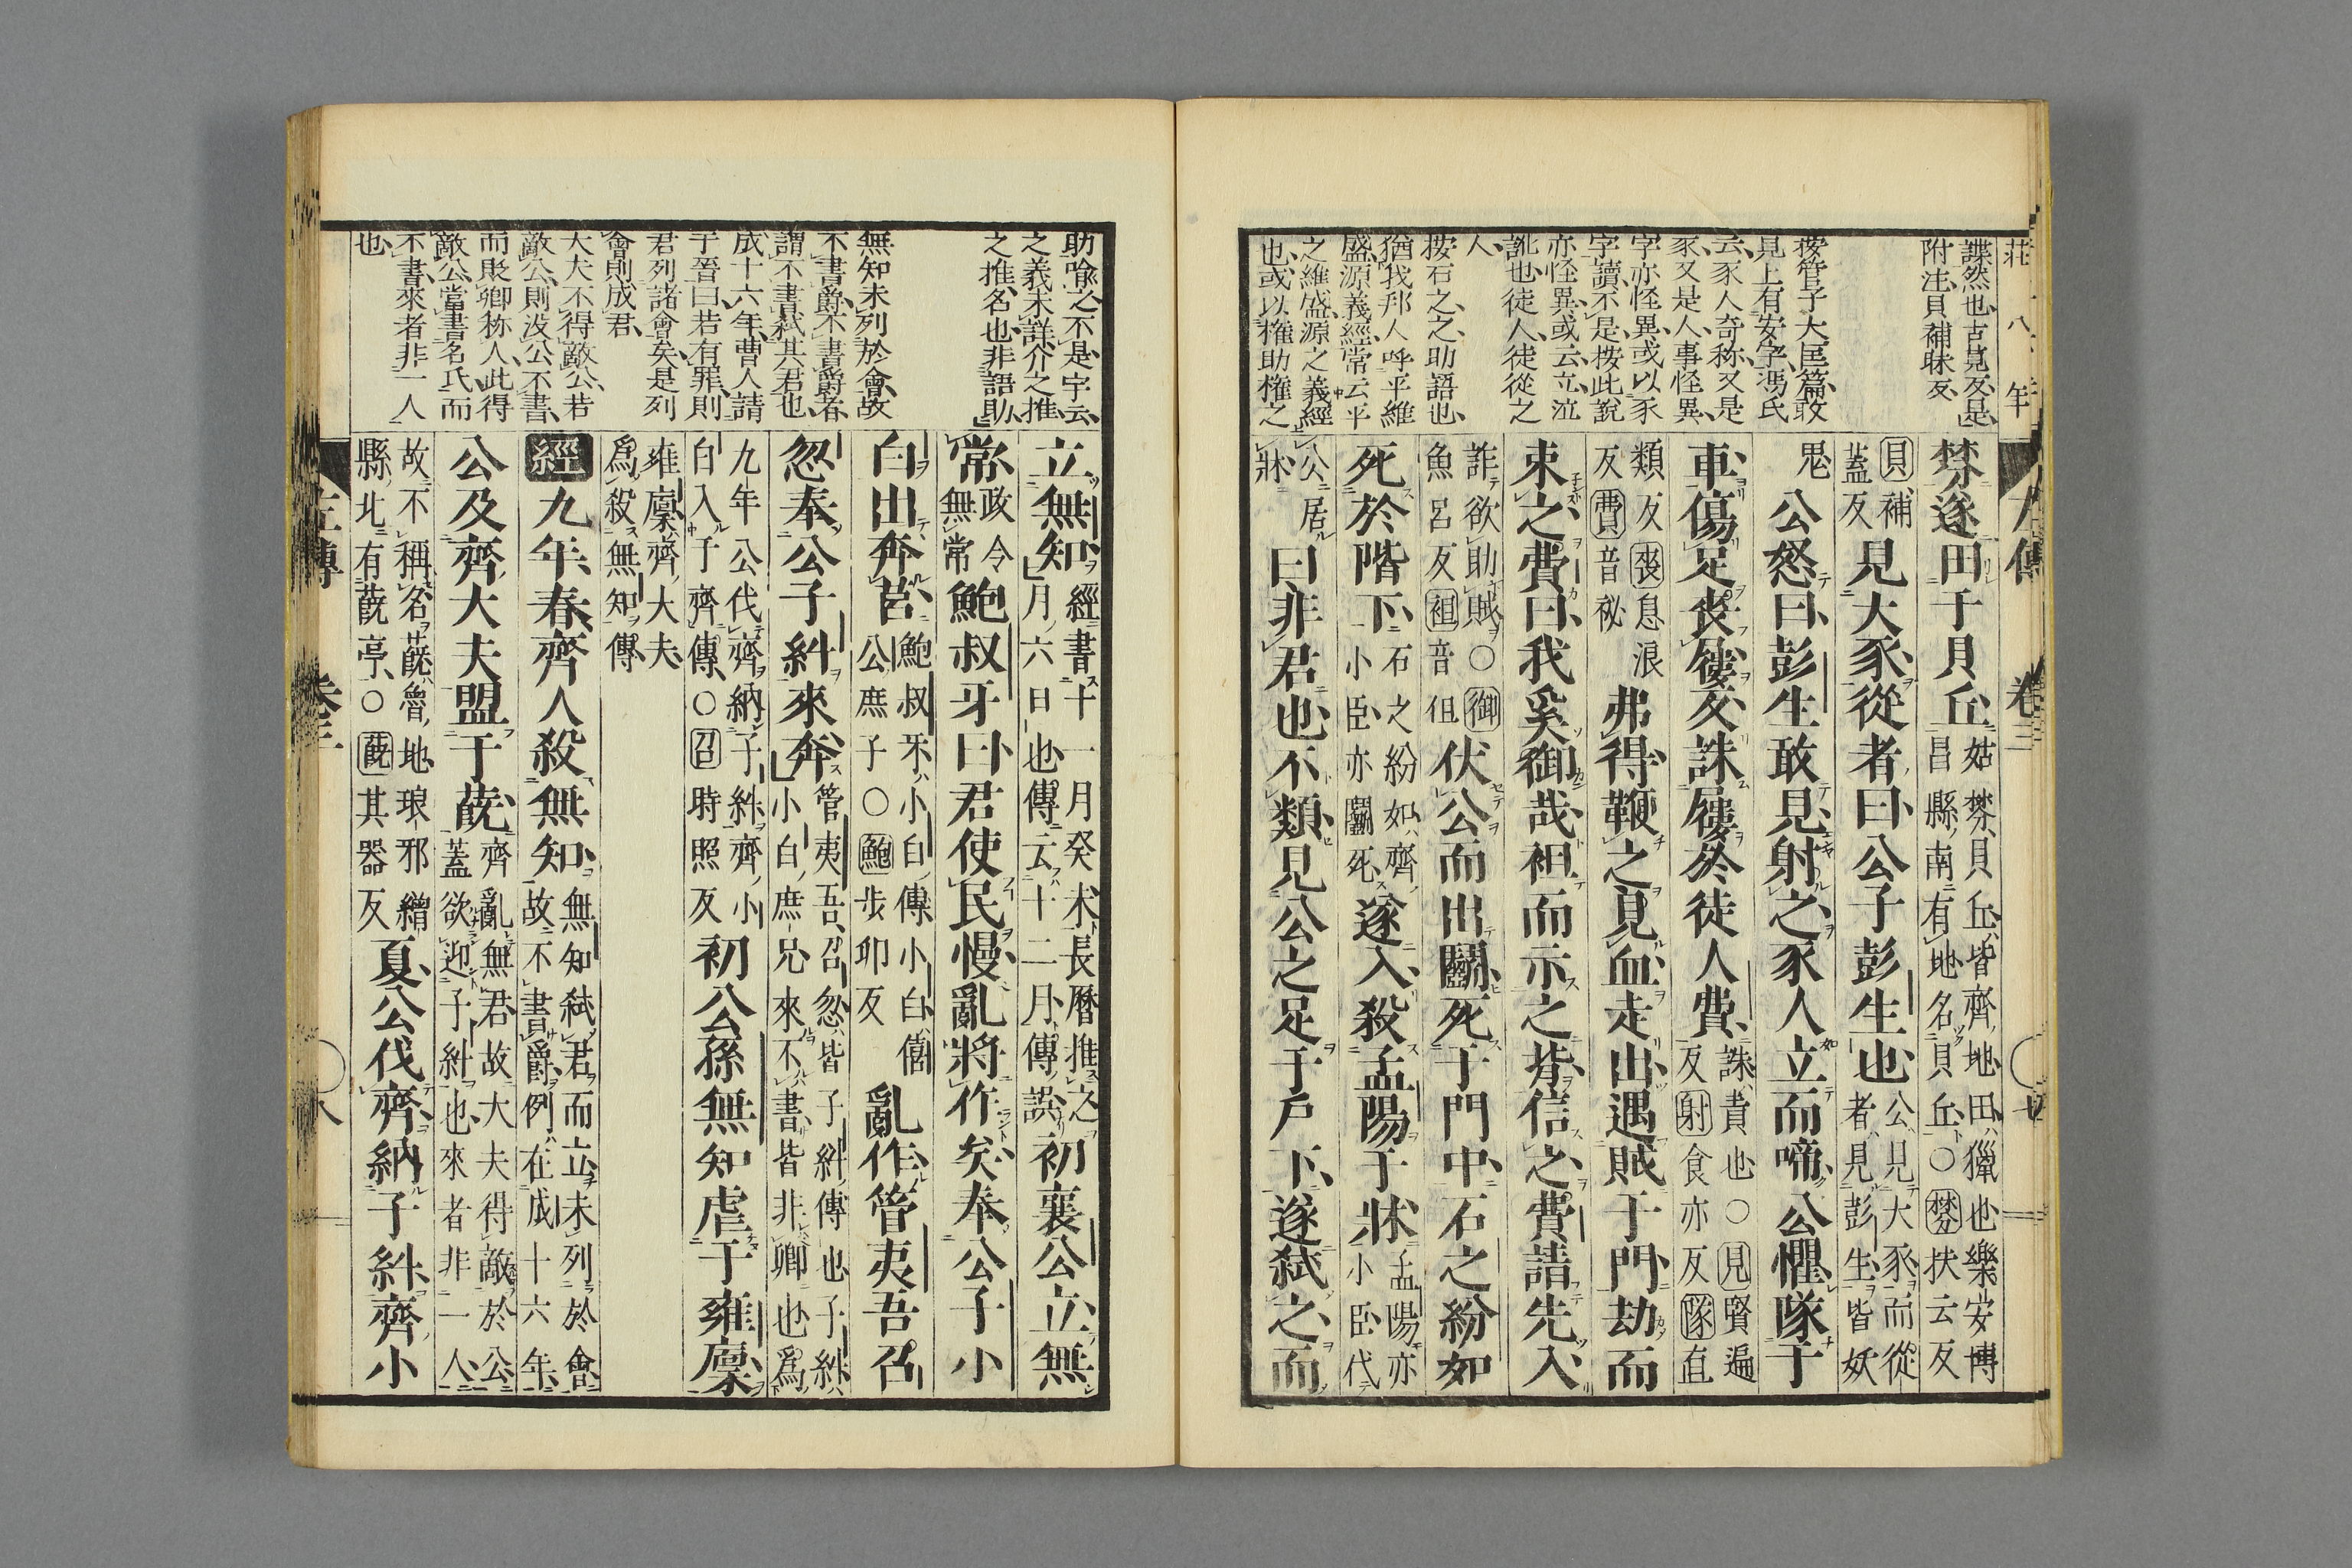 莊八年
左傳 卷三 七
諜然也古見反是
附注貝補眛反
按管子大匡篇敢
見上有安字馮氏
云豕人奇称又是
豕又是人事怪異
字亦怪異或以豕
字讀不是按此說
亦怪異或云立泣
訛也徒人徒從之
人
按石之之助語也
猶我邦人呼平維
盛源義經常云平
之維盛源之義經
也或以権助権之
棼遂田于貝丘
姑棼貝丘皆齊地田獵也樂安博
昌縣南有地名貝丘○棼扶云反
貝補
蓋反
見大豕從者曰公子彭生也
公見大豕而從
者見彭生皆妖
鬼
公怒曰彭生敢見射之豕人立而啼公懼隊于
車傷足喪屨反誅屨於徒人費
誅責也○見賢遍
反射食亦反隊直
類反喪息浪
反費音祕
弗得鞭之見血走出遇賊于門劫而
束之費曰我奚御哉袒而示之背信之費請先入
詐欲助賊○御
魚呂反袒音但
伏公而出鬭死于門中石之紛如
死於階下
石之紛如齊
小臣亦鬭死
遂入殺孟陽于牀
孟陽亦
小臣代
公居
牀
曰非君也不類見公之足于戶下遂弑之而
助喩之不是宇云
之義未詳介之推
之推名也非語助
無知未列於會故
不書爵不書爵者
謂不書弑其君也
成十六年曹人請
于晉曰若有罪則
君列諸會矣是列
會則成君
大夫不得敵公若
敵公則没公不書
而貶卿称人此得
敵公當書名氏而
不書來者非一人
也
立無知
經書十一月癸未長曆推之
月六日也傳云十二月傳誤
初襄公立無
常
政令
無常
鮑叔牙曰君使民慢亂將作矣奉公子小
白出奔莒
鮑叔牙小白傅小白僖
公庶子○鮑步卯反
亂作管夷吾召
忽奉公子糾來奔
管夷吾召忽皆子糾傅也子糾
小白庶兄來不書皆非卿也爲
九年公伐齊納子糾齊小
白入于齊傳○召時照反
初公孫無知虐于雍廩
雍廩齊大夫
爲殺無知傳
經九年春齊人殺無知
無知弑君而立未列於會
故不書爵例在成十六年
公及齊大夫盟于蔇
齊亂無君故大夫得敵於公
蓋欲迎子糾也來者非一人
故不稱名蔇魯地琅邪繒
縣北有蔇亭○蔇其器反
夏公伐齊納子糾齊小
左傳 卷三 八